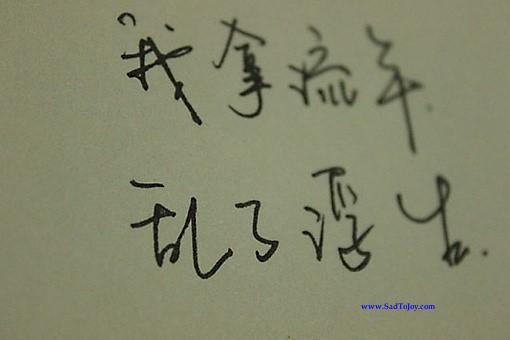 “我拿流年
乱了浮生.
www.SadToJoy.com